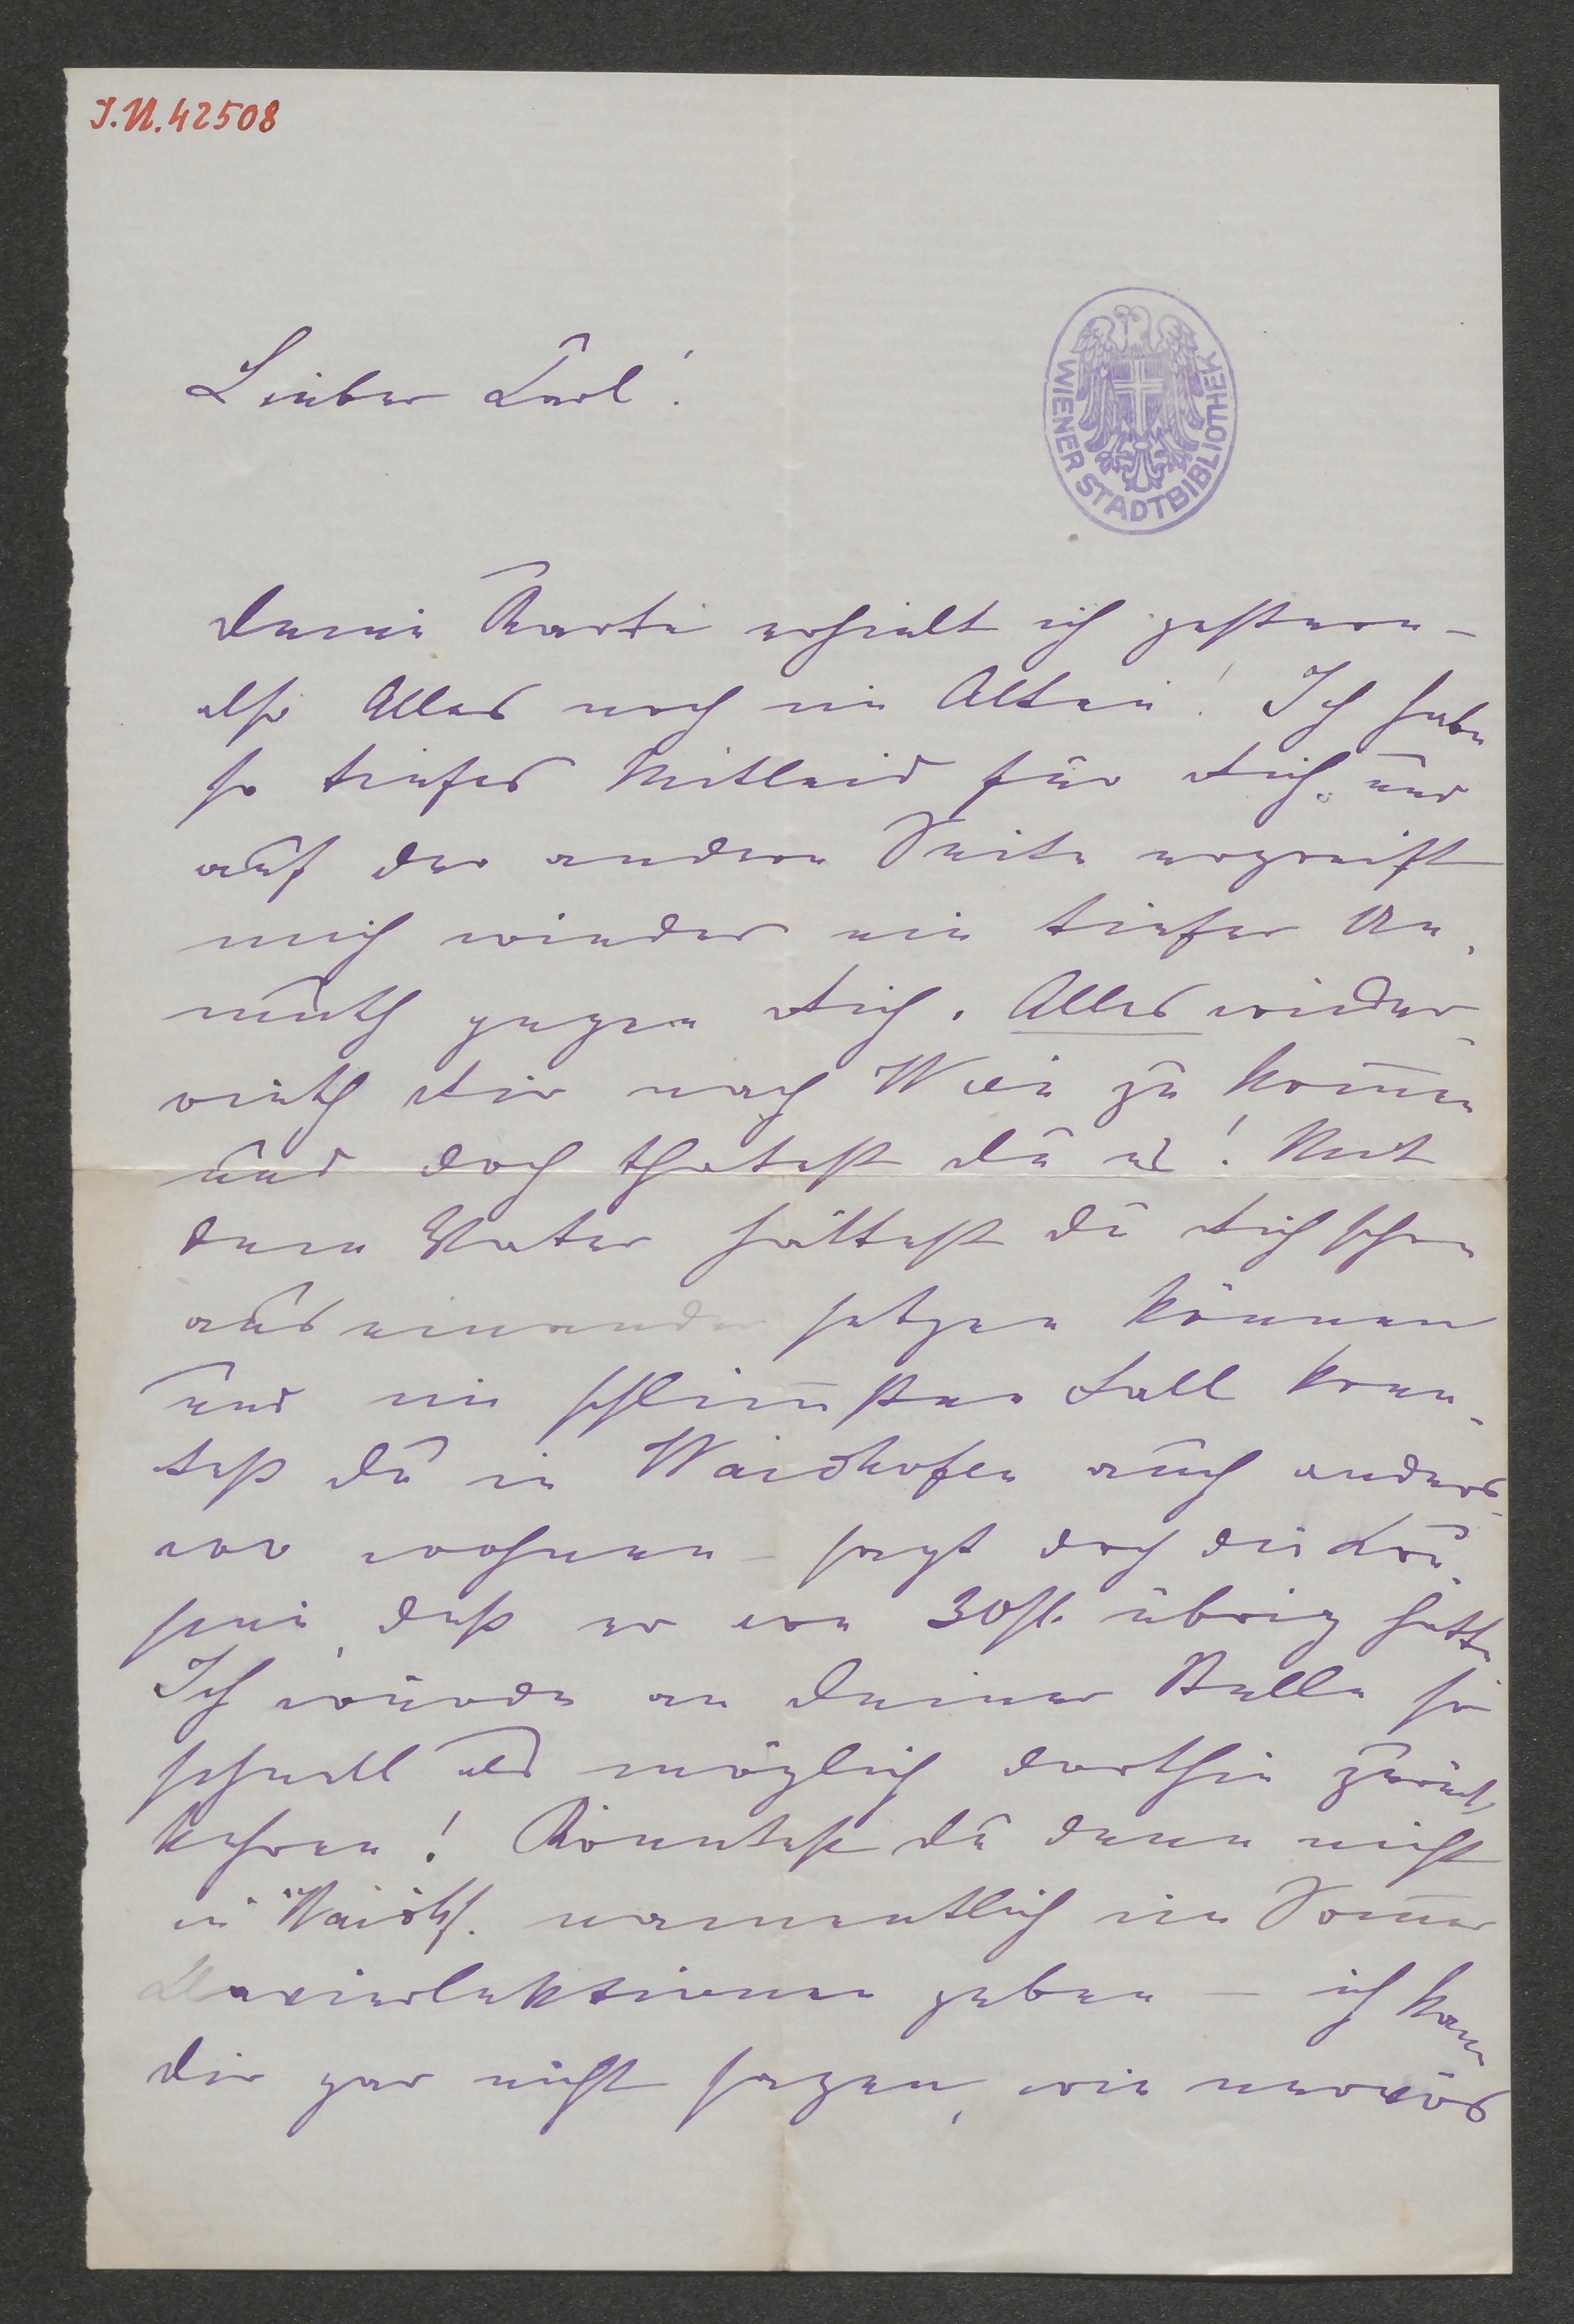 I.N. 42508
Lieber Karl!
WIENER STADTBIBLIOTHEK
Deine Karte erhielt ich gestern –
also Alles noch im Alten! Ich habe
so tiefes Mitleid für Dich und
auf der andern Seite ergreift
mich wieder ein tiefer Un-
muth gegen Dich. Alles wider-
rieth Dir nach Wien zu kom̄en
und doch thatest Du es! Mit
dem Vater hättest Du Dich schon
auseinander setzen können
und im schlim̄sten Fall konn-
test Du in Waidhofen auch anders-
wo wohnen – sagt doch die
daß er von 30 fl. übrig hatte
Ich würde an Deiner Stelle so
schnell als möglich dorthin zurück-
kehren! Könntest Du denn nicht
in Waidhf. namentlich im Som̄er
Clavierlektionen geben – ich kann
Dir gar nicht sagen, wie nervös